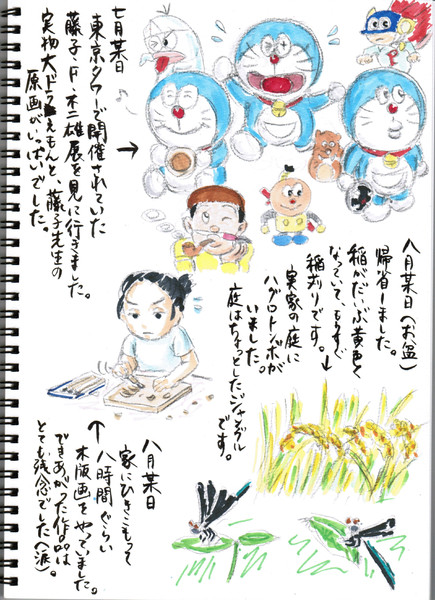 七月某日
東京タワーで開催されていた
藤子・F・不二雄展を見に行きました。
実物大ドラえもんと、藤子先生の
原画がいっぱいでした。
八月某日(お盆)
帰省しました。
稲がだいぶ黄色く
なっていて、もうすぐ
稲刈りです。
実家の庭に
ハグロトンボが
いました。
庭はちょっとしたジャングル
です。
八月某日
家にひきこもって
八時間ぐらい
木版画をやっていました。
できあがった作品は
とても残念でした(涙)